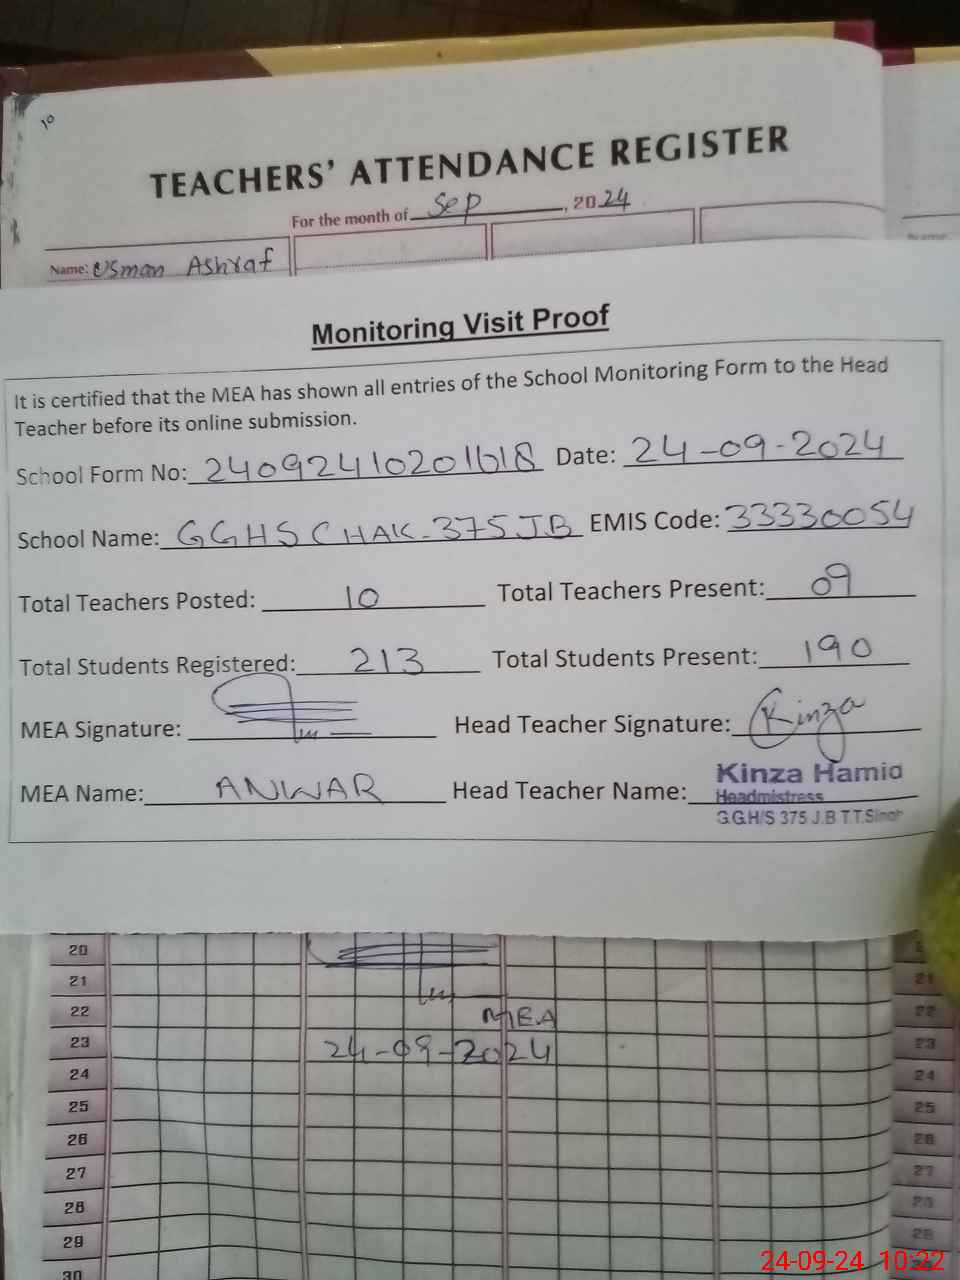 10
TEACHERS' ATTENDANCE REGISTER
For the month of Sep, 2024
Name: Usman Ashraf
Monitoring Visit Proof
It is certified that the MEA has shown all entries of the School Monitoring Form to the Head
Teacher before its online submission.
School Form No: 24092410201618 Date: 24-09-2024
School Name: GGHS CHAK-375JB EMIS Code: 33330054
Total Teachers Posted: 10 Total Teachers Present: 09
Total Students Registered: 213 Total Students Present: 190
MEA Signature: Head Teacher Signature: Kinza
MEA Name: ANWAR Head Teacher Name: Kinza Hamid
Headmistress
G.G.H/S 375 J.B T.T.Singh
20
21 21
22 MEA 22
23 24-09-2024 23
24 24
25 25
26 26
27 27
28 28
29
30
24-09-24 10:22